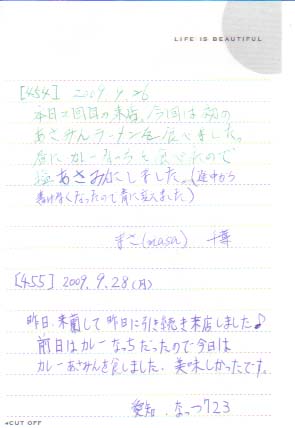 LIFE IS BEAUTIFUL
[454] 2009.9.26
本日二回目の来店。今回は初の
あさみんラーメンを食べました。
昼にカレーなっちを食べたので
塩あさみにしました。(途中から
書けなくなったので青に変えました)
まさ(masa) 千葉
[455] 2009.9.28(月)
昨日、来蘭して昨日に引き続き来店しました♪
前日はカレーなっちだったので今日は
カレーあさみんを食しました。美味しかったです。
愛知 なっつ723
◂CUT OFF